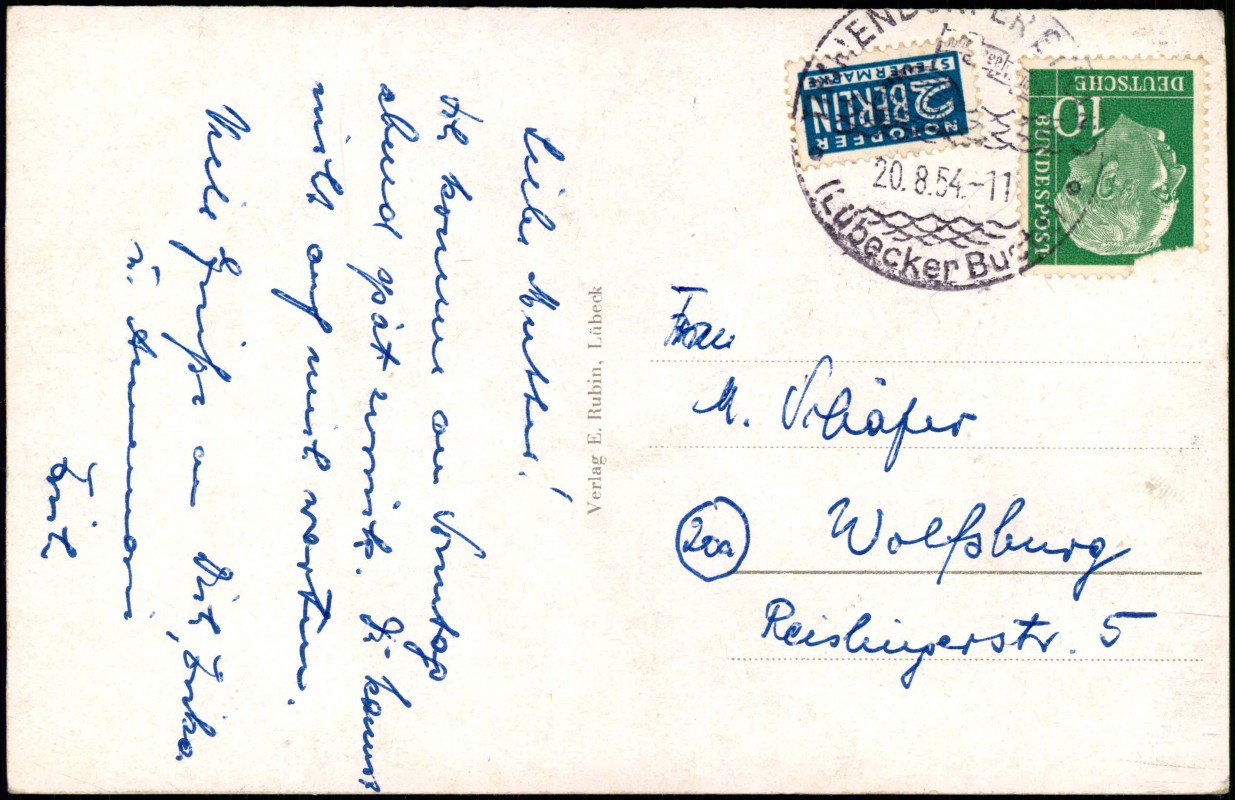 Liebe Mutter!
Ich komme am Sonntag
abend spät zurück. Du kannst
nicht auf mich warten.
Viele Grüße an Dich, Erika
u. Annemarie
Verlag E. Rubin, Lübeck
STEUERMARKE
2 BERLIN
NOTOPFER
20.8.54.-11
(Lübecker
DEUTSCHE
10
BUNDESPOST
Frau
M. Schäfer
20a
Wolfsburg
Reislingerstr. 5